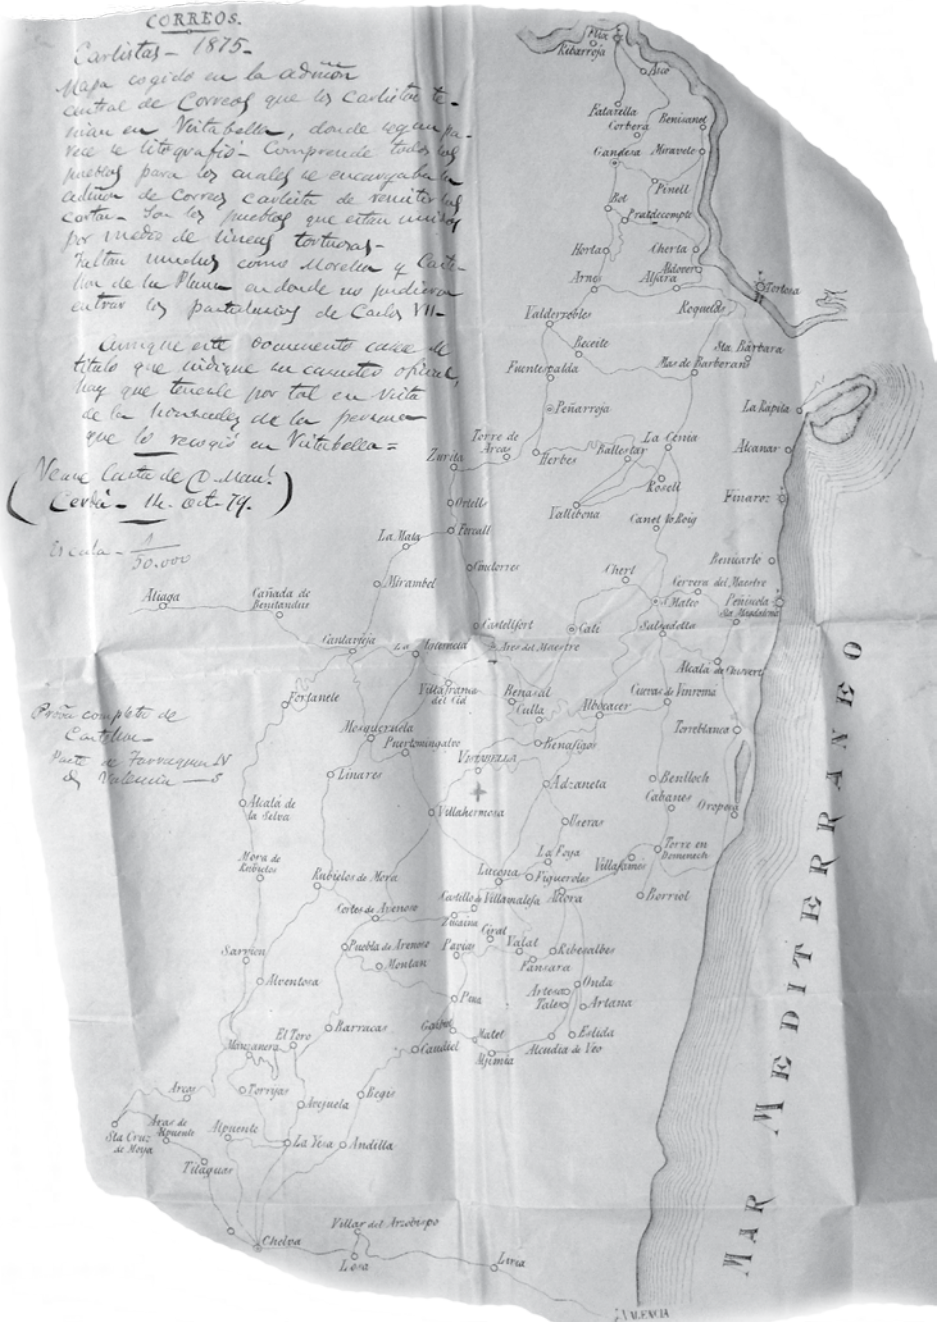 CORREOS.
Carlistas - 1875-
Mapa cogido en la admón
central de Correos que los Carlistas te-
nian en Vistabella, donde segun pa-
rece se litografió- Comprende todos los
pueblos para los cuales se encargaba la
admón de correos carlista de remitir las
cartas- Son los pueblos que estan unidos
por medio de lineas tortuosas-
Faltan muchos como Morella y Caste-
llon de la Plana en donde no pudieron
entrar los partidarios de Carlos VII-
Aunque este documento carece de
titulo que indique su caracter oficial,
hay que tenerle por tal en vista
de la honradez de la persona
que lo recogió en Vistabella=
(Vease Carta de D. Man!
Cerdá- 14. Oct. 79.)
Escala - 1
50.000
Prov.a completa de
Castellon
Parte de Tarragona N
id Valencia - S
Flix
Ribarroja
Asco
Fatarella
Corbera
Benisanet
Gandesa
Moravete
Pinell
Bot
Pratdecompte
Horta
Cherta
Aldover
Arnes
Alfara
Tortosa
Roquetas
Valderrobles
Beceite
Sta. Bárbara
Fuentespalda
Mas de Barberans
Peñarroja
La Rápita
Torre de
Arcas
La Cenia
Alcanar
Zurita
Herbes
Ballestar
Rosell
Ortells
Vinaroz
Vallibona
Canet lo Roig
Forcall
La Mata
Cinctorres
Benicarló
Chert
Mirambel
Cervera del Maestre
Aliaga
Cañada de
Benitandus
S. Mateo
Peñiscola
Sta. Magdalena
Castellfort
Cati
Salsadella
Cantavieja
La Iglesuela
Ares del Maestre
Alcalá de Chivert
Villafranca
del Cid
Benasal
Cuevas de Vinromá
Fortanete
Culla
Albocacer
Mosqueruela
Torreblanca
Puertomingalvo
Benafigos
VISTABELLA
Linares
Adzaneta
Benlloch
Cabanes
Oropesa
Alcalá de
la Selva
Villahermosa
Useras
La Foya
Torre en
Domenech
Mora de
Rubielos
Villafamés
Rubielos de Mora
Lucena
Figueroles
Castillo de Villamalefa
Alcora
Borriol
Cortes de Arenoso
Zucaina
Cirat
Puebla de Arenoso
Pavias
Vallat
Ribesalbes
Sarrion
Montan
Fansara
Alventosa
Onda
Artesa
Pina
Tales
Artana
Barracas
Gaibiel
Matet
Eslida
El Toro
Manzanera
Caudiel
Algimia
Alcudia de Veo
Arcos
Torrijas
Begis
Avejuela
Aras de
Alpuente
Alpuente
Sta Cruz
de Moya
La Yesa
Andilla
Titaguas
Villar del Arzobispo
Chelva
Losa
Liria
VALENCIA
MAR MEDITERRANEO